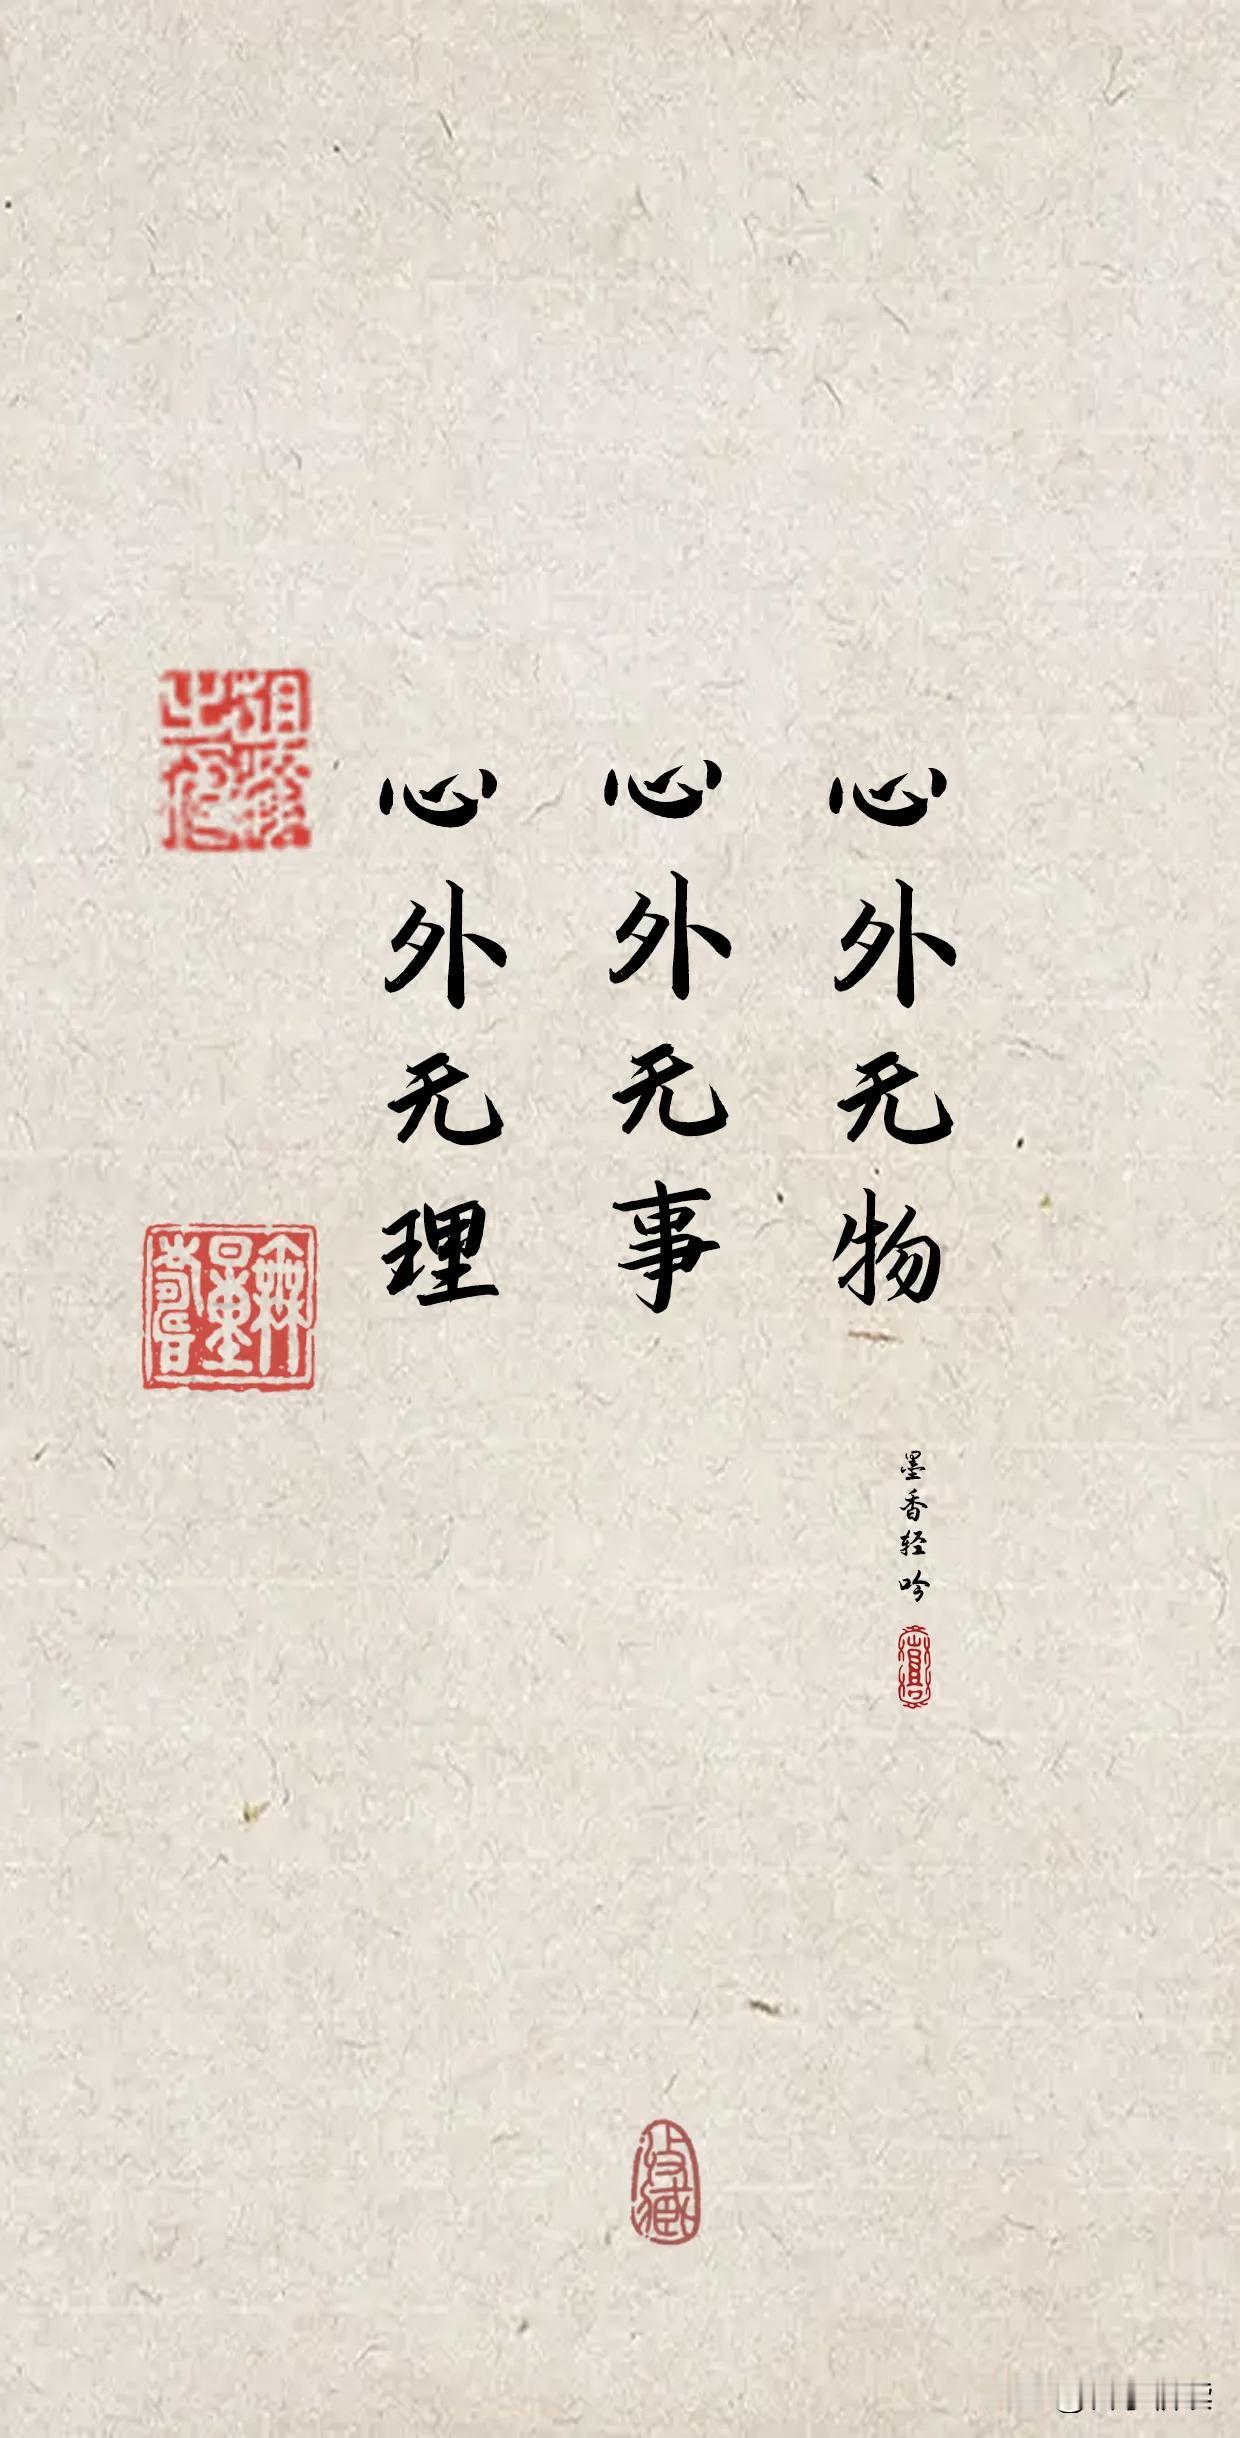 心外无物
心外无事
心外无理
墨香轻吟
收藏